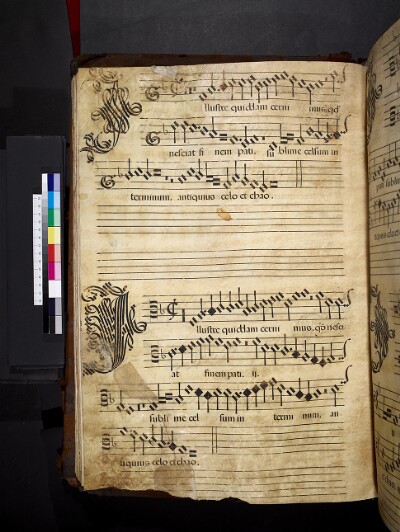 Illustre quiddam cerni mus. qd
nesciat fi nem pati. su blime celsum in
terminum. antiquius celo et chao.
Illustre quiddam cerni mus. qd nesci
at finem pati. ij.
subli me cel sum in termi num. an
tiquius celo et chao.